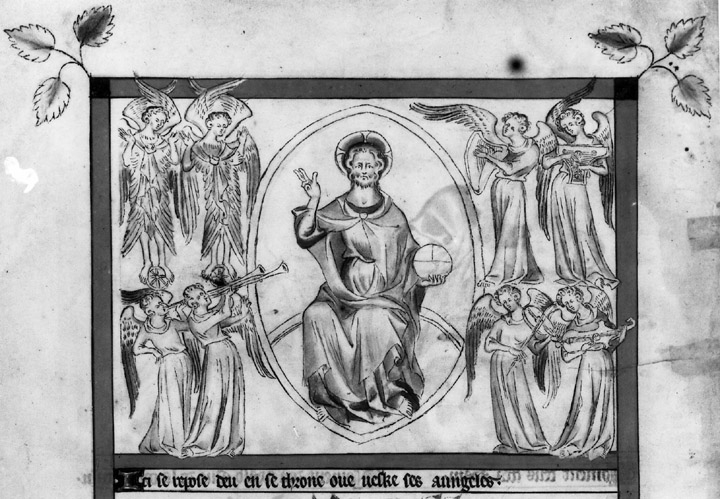 Ici se repose deu en se throne oue ueske ses aungeles.